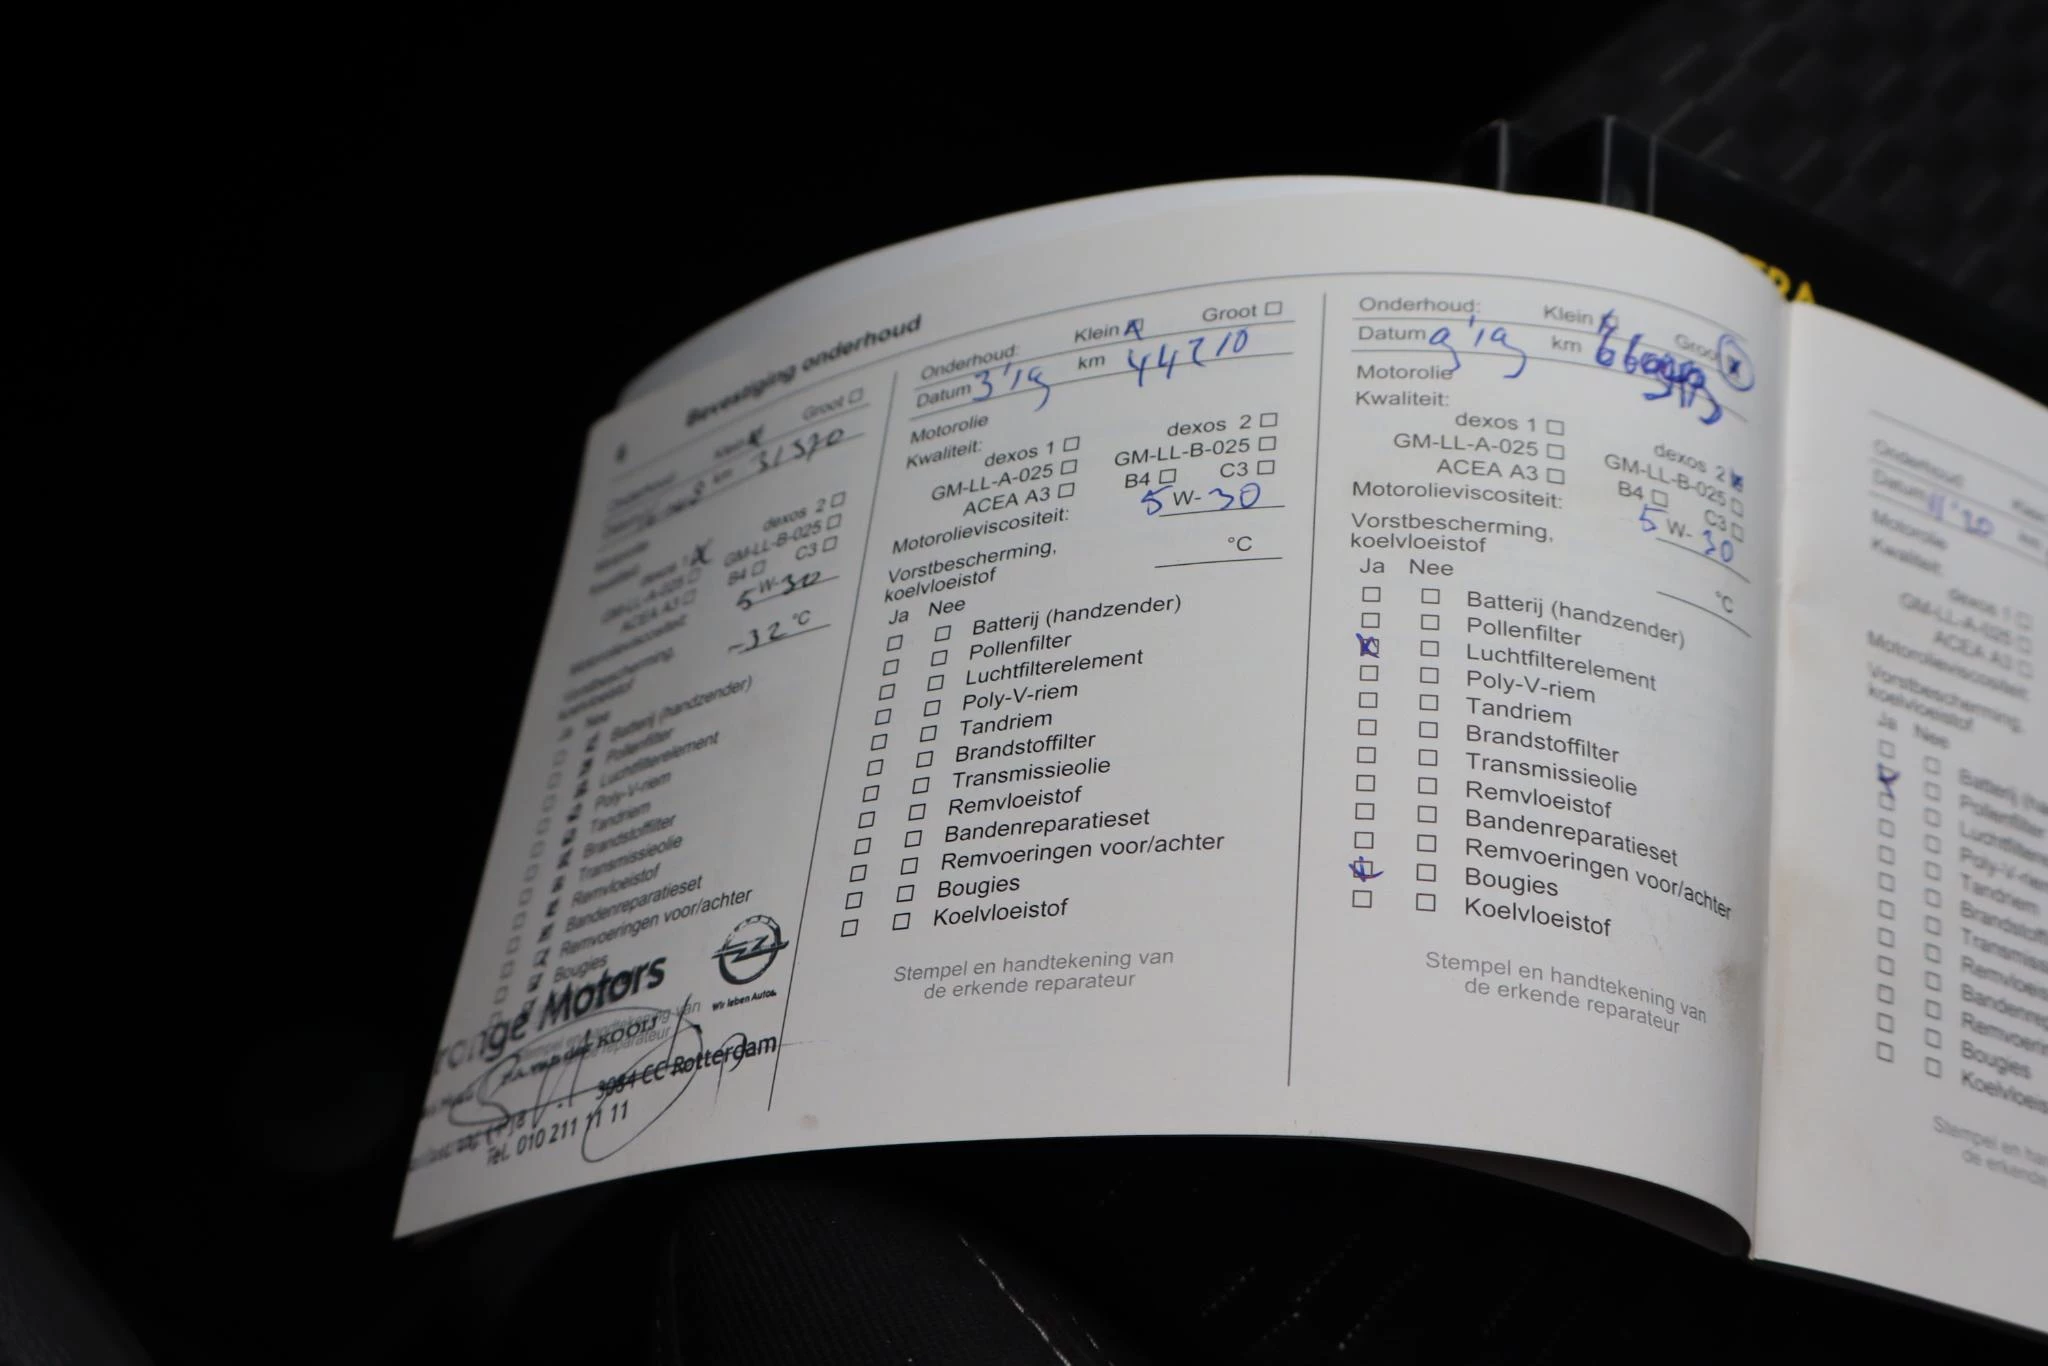 6 Bevestiging onderhoud
Onderhoud: Klein Groot
km 31570
Motorolie
Kwaliteit:
dexos 1 dexos 2
GM-LL-A-025 GM-LL-B-025
ACEA A3 B4 C3
Motorolieviscositeit: 5 W-30
Vorstbescherming,
koelvloeistof -32 °C
Ja Nee
Batterij (handzender)
Pollenfilter
Luchtfilterelement
Poly-V-riem
Tandriem
Brandstoffilter
Transmissieolie
Remvloeistof
Bandenreparatieset
Remvoeringen voor/achter
Bougies
Stempel en handtekening van
de erkende reparateur
Motors
Wir leben Autos.
KOOIJ
3084 CC Rotterdam
Tel. 010 211 11 11
Onderhoud: Klein Groot
Datum 3'19 km 44210
Motorolie
Kwaliteit:
dexos 1 dexos 2
GM-LL-A-025 GM-LL-B-025
ACEA A3 B4 C3
Motorolieviscositeit: 5 W-30
Vorstbescherming,
koelvloeistof °C
Ja Nee
Batterij (handzender)
Pollenfilter
Luchtfilterelement
Poly-V-riem
Tandriem
Brandstoffilter
Transmissieolie
Remvloeistof
Bandenreparatieset
Remvoeringen voor/achter
Bougies
Koelvloeistof
Stempel en handtekening van
de erkende reparateur
Onderhoud: Klein Groot
Datum 9'19 km
Motorolie
Kwaliteit:
dexos 1 dexos 2
GM-LL-A-025 GM-LL-B-025
ACEA A3 B4 C3
Motorolieviscositeit: 5 W-30
Vorstbescherming,
koelvloeistof °C
Ja Nee
Batterij (handzender)
Pollenfilter
Luchtfilterelement
Poly-V-riem
Tandriem
Brandstoffilter
Transmissieolie
Remvloeistof
Bandenreparatieset
Remvoeringen voor/achter
Bougies
Koelvloeistof
Stempel en handtekening van
de erkende reparateur
Onderhoud
Datum 11'20
Motorolie
Kwaliteit:
dexos 1
GM-LL-A-025
ACEA A3
Motorolieviscositeit:
Vorstbescherming,
koelvloeistof
Ja Nee